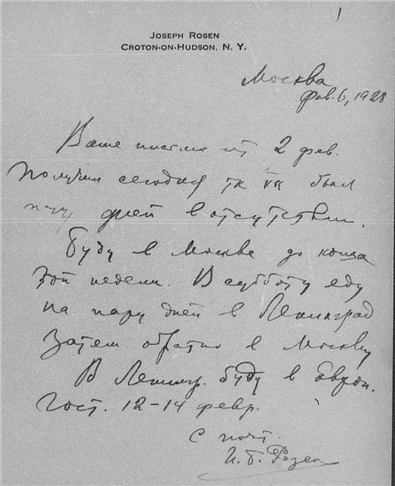 1
Joseph Rosen
Croton-on-Hudson, N. Y.
Москва
Фев. 6, 1928
Ваше письмо от 2 фев.
Получил сегодня тк был
пару дней в отсутствии.
Буду в Москве до конца
этой недели. В субботу еду
на пару дней в Ленинград
Затем обратно в Москву
В Ленингр. буду в Европ.
Гост. 12-14 февр.
С почт.
И. Б. Розен